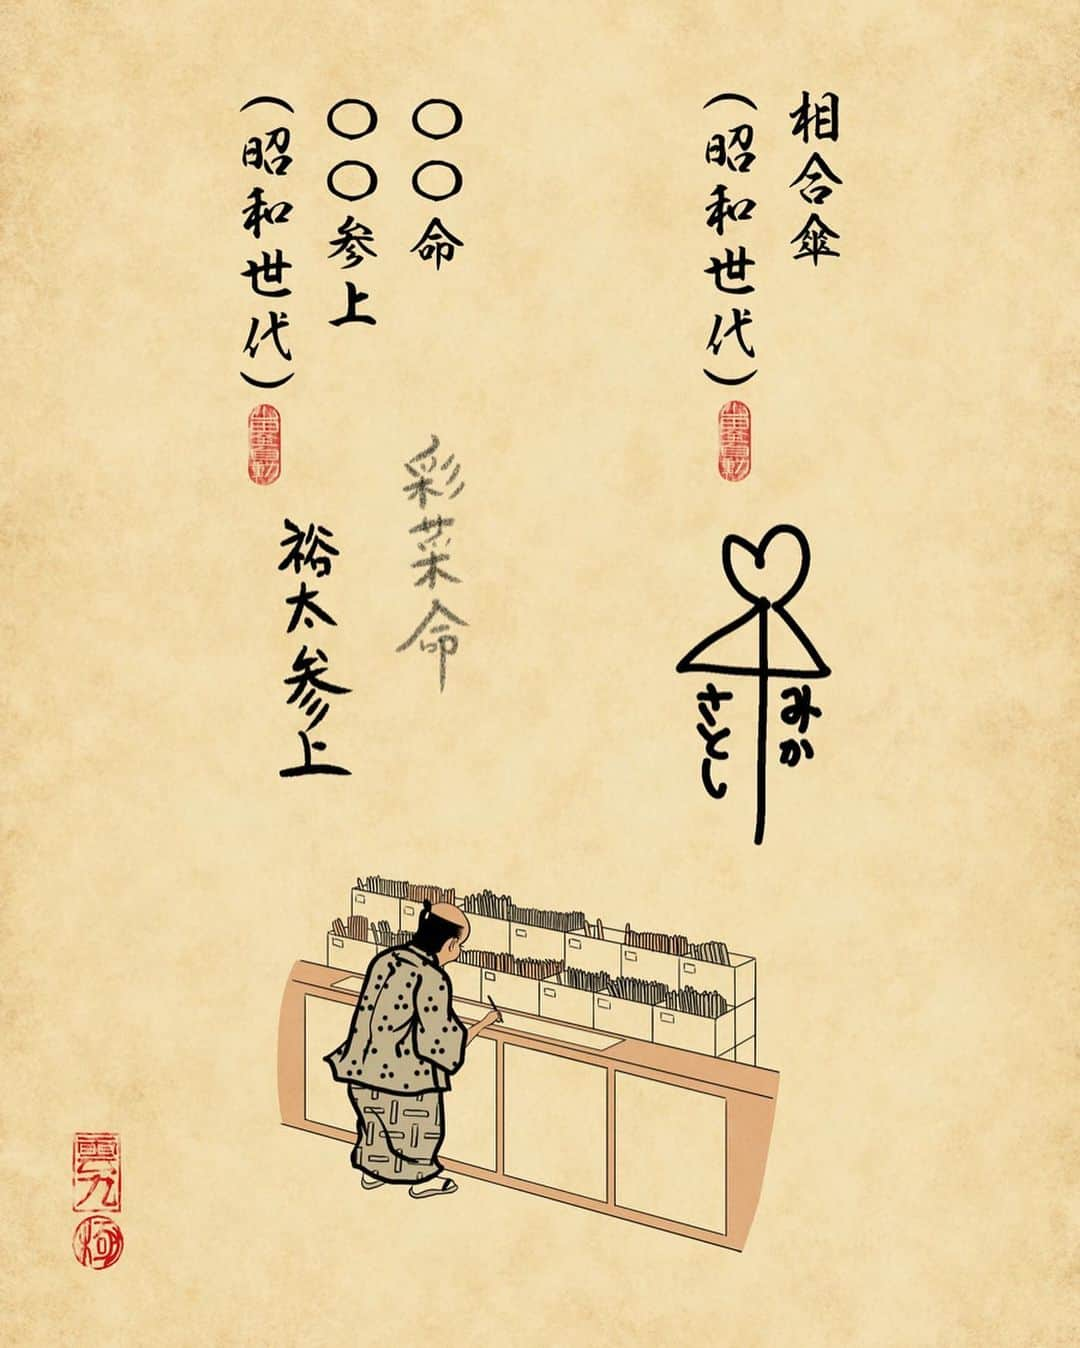 相合傘
（昭和世代）
みか
さとし
〇〇命
〇〇参上
（昭和世代）
彩菜命
裕太参上